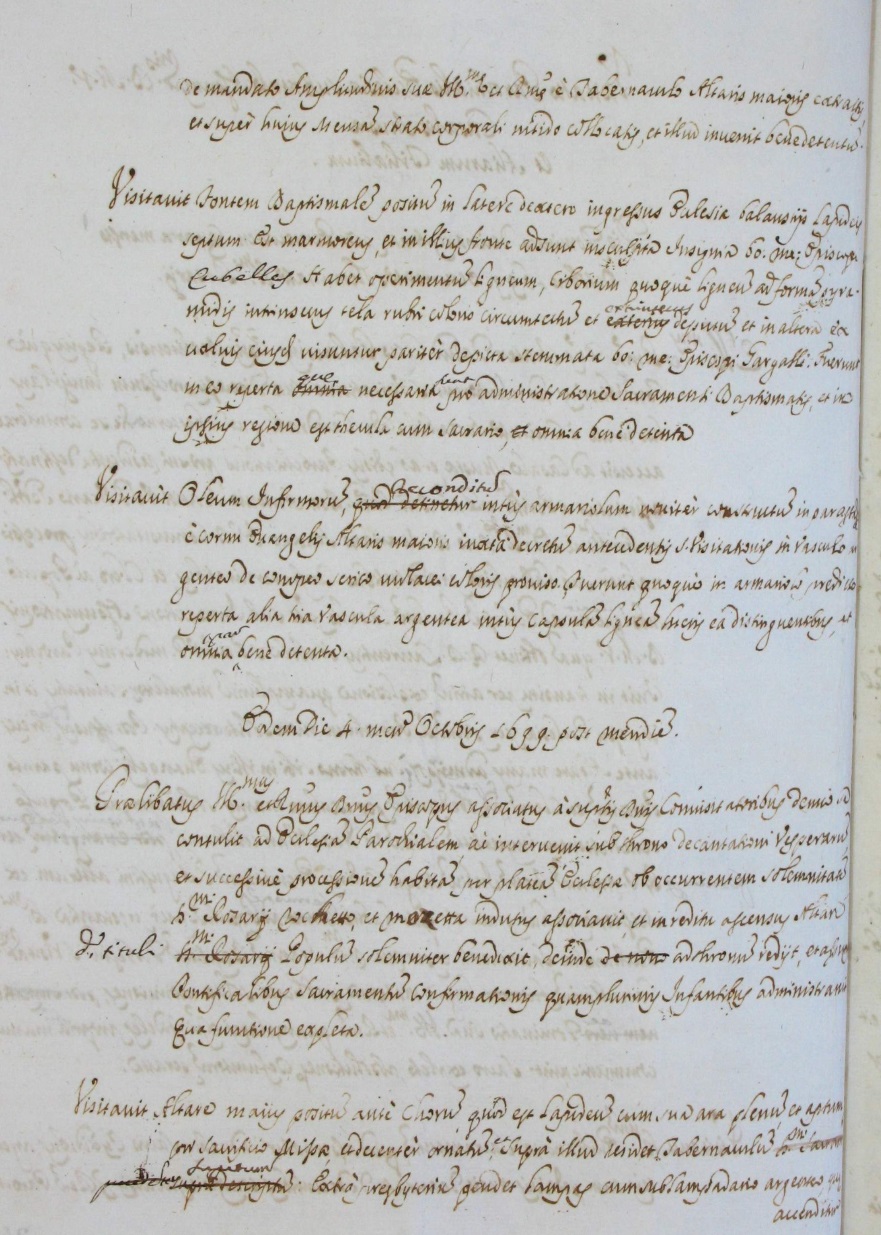 de mandato Amplitudinis suæ Ill.mæ et Rmæ è Tabernaculo Altaris maioris extractis,
et supèr hujus Mensa strato corporali nitide collocatis, et illud invenit bene detentũ.
Visitavit Fontem Baptismalẽ positũ in latere dextero ingressus Ecclesiæ balaustijs lapideis
septum. Est marmoreus, et in illius fronte adsunt insculpta Insignia bo: me: Episcopi
Cubelles. Habet operimentũ ligneum, Ciborium quoquè ligneũ ad formã pyra-
midis intrinsecus tela rubri coloris circumtectũ et exterius depictũ et in altera ex
valvis eiusd. visuntur paritèr depicta stemmata bo: me: Episcopi Gargalli. Fuerunt
in eo reperta que omnia necessaria sunt pro administratione Sacramenti Baptismatis, et in
ipsius regione est thecula cum Sacrario, et omnia bene detenta
Visitavit Oleum Infirmorũ, reconditũ quod detinetur intùs armariolum novitèr constructũ in pariete
è cornu Evangelij Altaris maioris iuxta decretũ antecedentis S. Visitationis in vasculo ar
genteo de conopeo serico violacei coloris proviso. Fuerunt quoquè in armariolo predicto
reperta alia tria vascula argentea intùs capsulã ligneã literis ea distinguentibus, et
omnia bene detenta.
Eadem Die 4. mensis Octobris 1699. post meridiẽ.
Prælibatus Ill.mus et Rmus Dnus Episcopus associatus à suptis Dnis Convisitatoribus denuò se
contulit ad Ecclesiã Parochialem, ac intervenit sub throno decantationi Vesperarũ,
et successivè processione habita per plateã Ecclesiæ ob occurrentem solemnitatẽ
S.mi Rosarij rochetto, et mozetta indutus associavit, et in reditu ascensus Altare
d.i tituli S.mi Rosarij Populũ solemniter benedixit, deinde de novo ad thronũ redijt, et assup
Pontificalibus Sacramentũ Confirmationis quamplurimis Infantibus administravit
Qua functione expleta.
Visitavit Altare maius positũ antè Chorũ quod est lapideũ cum sua ara plenũ, et aptum
pro sacrificio Missæ et decentèr ornatũ. Suprà illud residet Tabernaculũ
Extrà presbyteriũ pendet lampas cum sublampadario argenteo
accenditur